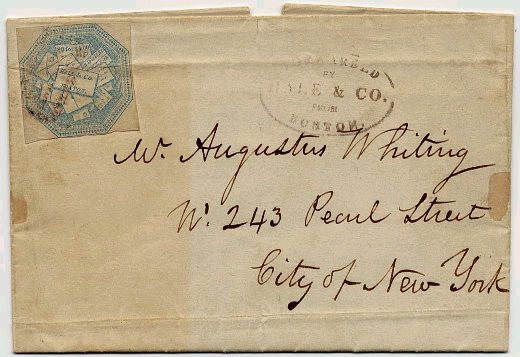 HALE & CO.
BOSTON.
FORWARDED
BY
HALE & CO.
FROM
BOSTON.
Mr. Augustus Whiting
No. 243 Pearl Street
City of New York